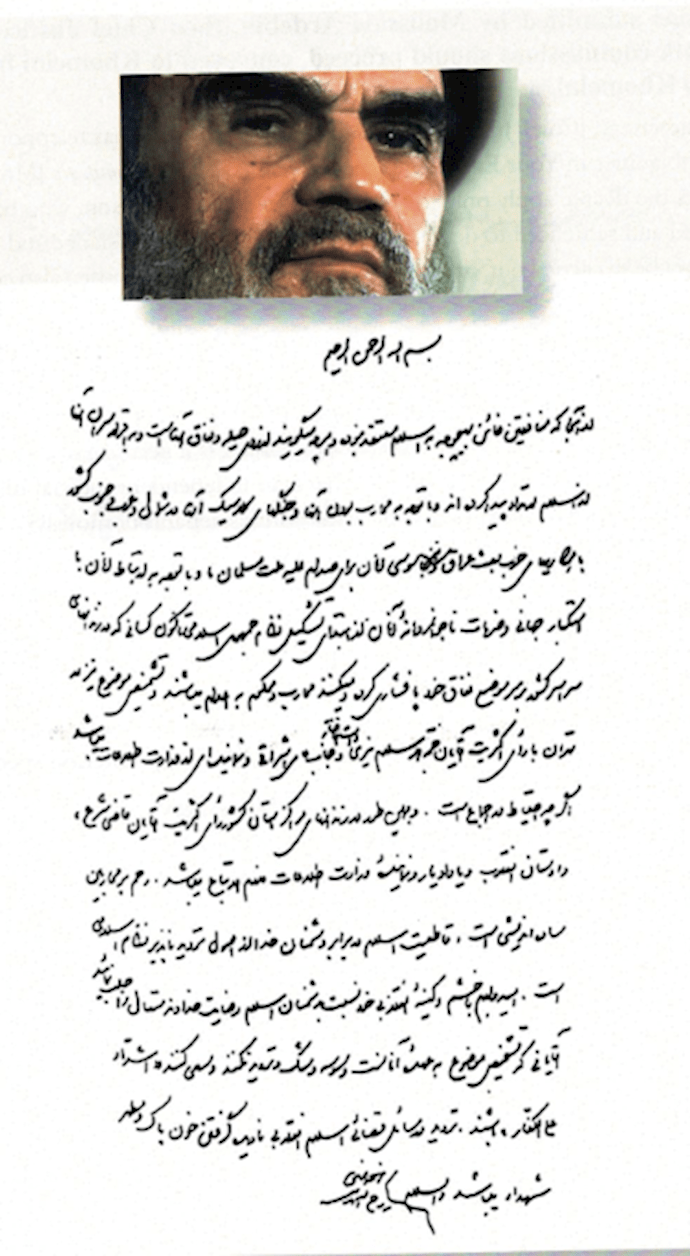 بسم الله الرحمن الرحیم
از آنجا که منافقین خائن بهیچوجه به اسلام معتقد نبوده و هرچه میگویند از روی حیله و نفاق آنهاست و به اقرار سران آنها
از اسلام ارتداد پیدا کرده اند و با توجه به محارب بودن آنها و جنگهای کلاسیک آن در شمال و غرب و جنوب کشور
با همکاریهای حزب بعث عراق و نیز جاسوسی آنان برای صدام علیه ملت مسلمان ما و با توجه به ارتباط آنان با
استکبار جهانی و ضربات ناجوانمردانهٔ آنان از ابتدای تشکیل نظام جمهوری اسلامی تاکنون کسانی که در زندانهای
سراسر کشور بر سر موضع نفاق خود پافشاری کرده و میکنند محارب و محکوم به اعدام میباشند و تشخیص موضوع نیز در
تهران با رأی اکثریت آقایان حجةالاسلام نیری دامت افاضاته و جناب آقای اشراقی و نماینده ای از وزارت اطلاعات میباشد
اگر چه احتیاط در اجماع است . و همین طور در زندانهای مراکز استان کشور رأی اکثریت آقایان قاضی شرع ،
دادستان انقلاب و یا دادیار و نمایندهٔ وزارت اطلاعات لازم الاتباع میباشد . رحم بر محاربین
ساده اندیشی است ، قاطعیت اسلام در برابر دشمنان خدا از اصول تردید ناپذیر نظام اسلامی
است . امیدوارم با خشم و کینهٔ انقلابی خود نسبت به دشمنان اسلام رضایت خداوند متعال را جلب نمائید
آقایانی که تشخیص موضوع به عهدهٔ آنانست وسوسه و شک و تردید نکنند و سعی کنند اشداء
علی الکفار باشند . تردید در مسائل قضائی اسلام انقلابی نادیده گرفتن خون پاک و مطهر
شهداء میباشد والسلام روح الله الموسوی الخمینی